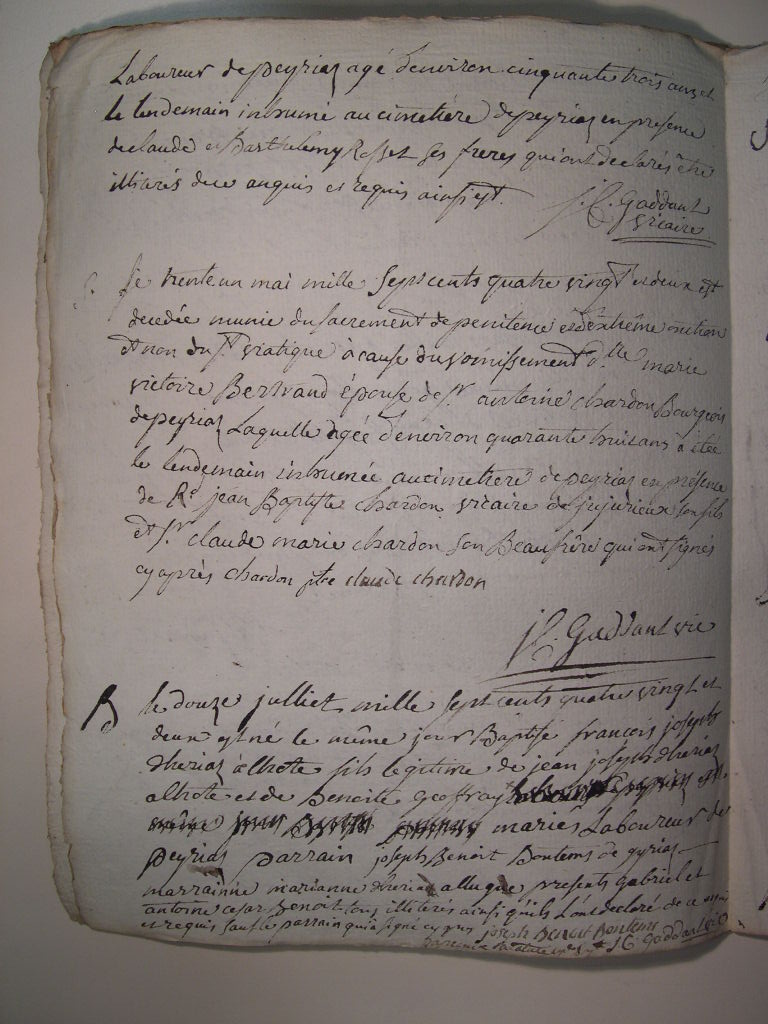 Laboureur de peyriaz agé denviron cinquante trois ans et
le lendemain inhumé au cimetiere de peyriaz en presence
de claude et Barthelemy Rosset ses freres qui ont declarés être
illitérés de ce enquis et requis ainsi est. J. C. Gaddant
vicaire
S. Le trente un mai mille sept cents quatre vingt et deux est
decedée munie du sacrement de penitence et dextrême onction
et non du st viatique à cause du vomissement dlle marie
victoire Bertrand épouse de sr antoine chardon Bourgeois
de peyriaz Laquelle agée denviron quarante huit ans a étée
le lendemain inhumée au cimetiere de peyriaz en présence
de Rd jean Baptiste chardon vicaire de jujurieux son fils
et sr claude marie chardon son Beaufrère qui ont signés
cy après chardon ptre claude chardon
J. C. Gaddant vic
B le douze julliet mille sept cents quatre vingt et
deux est né le même jour Baptisé françois joseph
Dheriaz alhote fils legitime de jean joseph dheriaz
alhote et de Benoite geoffray
mariés Laboureur de
peyrias parrain joseph Benoit Bontems de gyrias
marrainne marianne dheriaz presents gabriel et
antoine cesar Benoit tous illiterés ainsi quils l'ont declaré de ce enquis
et requis sauf le parrain qui a signé cy joseph Benoit Bontems
J C. Gaddant vic